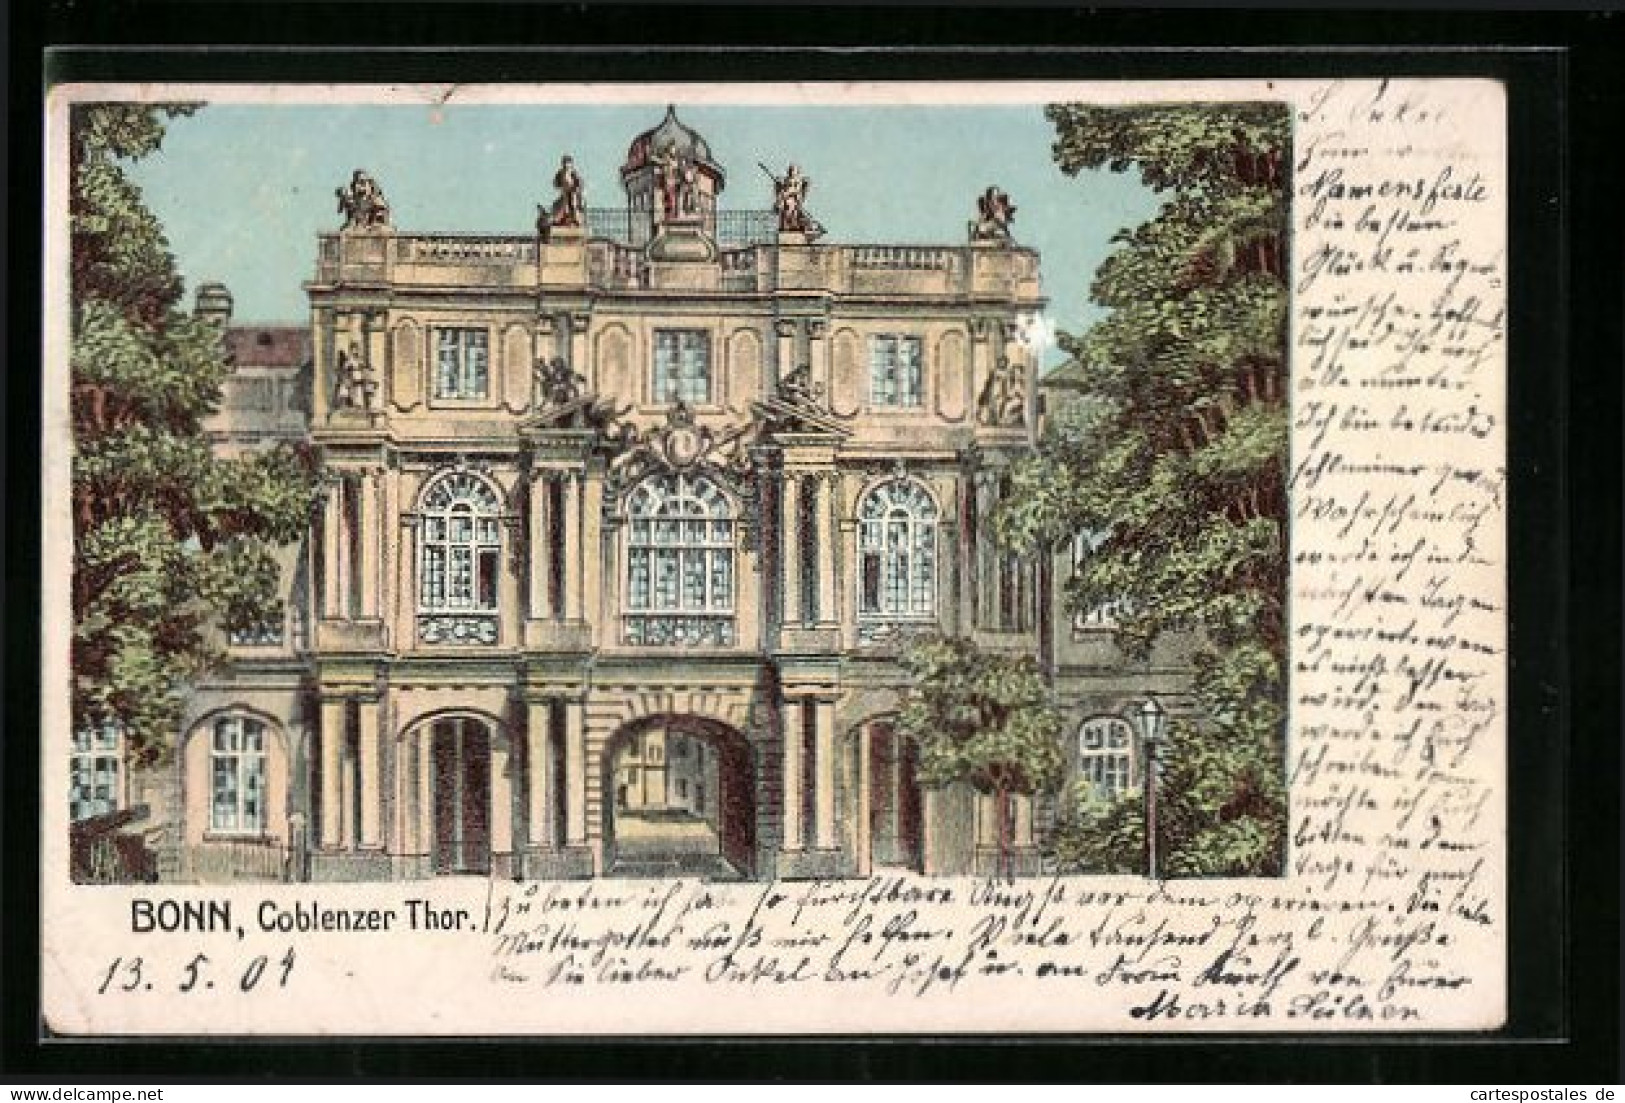 L. Onkel
Zum
Namensfeste
die besten
Glück u. Segens-
wünsche. Hoffent-
lich seid Ihr noch
alle munter.
Ich bin bedeutend
schlimmer
Wahrscheinlich
werde ich in den
nächsten Tagen
operiert, wenn
es nicht besser
wird. Den Tag
werde ich Euch
schreiben dann
möchte ich Euch
bitten an dem
Tage für mich
BONN, Coblenzer Thor.
zu beten ich habe so furchtbare Angst vor dem operieren. Die liebe
Muttergottes muß mir helfen. Viele tausend herzl. Grüße
an Sie lieber Onkel an Josef u. an Frau Kurth von Eurer
Maria
13. 5. 04
cartespostales de